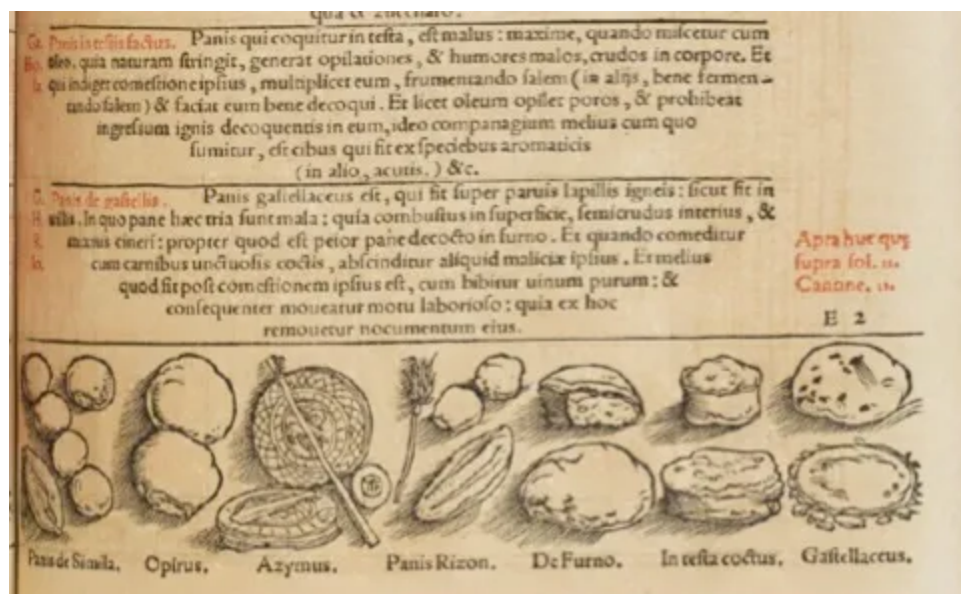 qua ex zuccharo.
Panis in testis factus. Panis qui coquitur in testa, est malus: maxime, quando miscetur cum
oleo, quia naturam stringit, generat opilationes, & humores malos, crudos in corpore. Et
qui indiget comestione ipsius, multiplicet eum, frumentando salem (in alijs, bene fermen-
tando salem) & faciat eum bene decoqui. Et licet oleum opilet poros, & prohibeat
ingressum ignis decoquentis in eum, ideo companagium melius cum quo
sumitur, est cibus qui fit ex speciebus aromaticis
(in alio, acutis.) &c.
G. Panis de gastellis. Panis gastellaceus est, qui fit super paruis lapillis igneis: sicut fit in
H. villis. In quo pane hæc tria sunt mala: quia combustus in superficie, semicrudus interius, &
R. mixtus cineri: propter quod est peior pane decocto in furno. Et quando comeditur
cum carnibus unctuosis coctis, abscinditur aliquid maliciæ ipsius. Et melius
quod fit post comestionem ipsius est, cum bibitur uinum purum: &
consequenter moueatur motu laborioso: quia ex hoc
remouetur nocumentum eius.
Apta huc quę
supra fol.
Canone.
E 2
Panis de Simila. Opirus. Azymus. Panis Rizon. De Furno. In testa coctus. Gastellaceus.